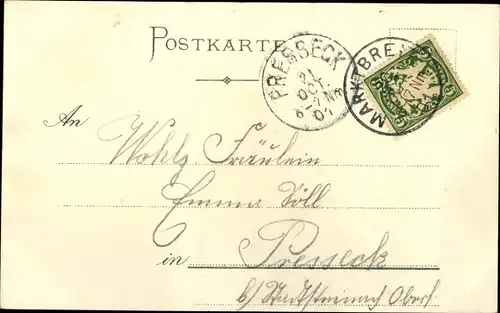 POSTKARTE
PRESSECK
21
OCT.
6-7 Nm
01
MARKT
5
An
Wohlg. Fräulein
Emma Söll
in Presseck
b/ Stadtsteinach Oberf.